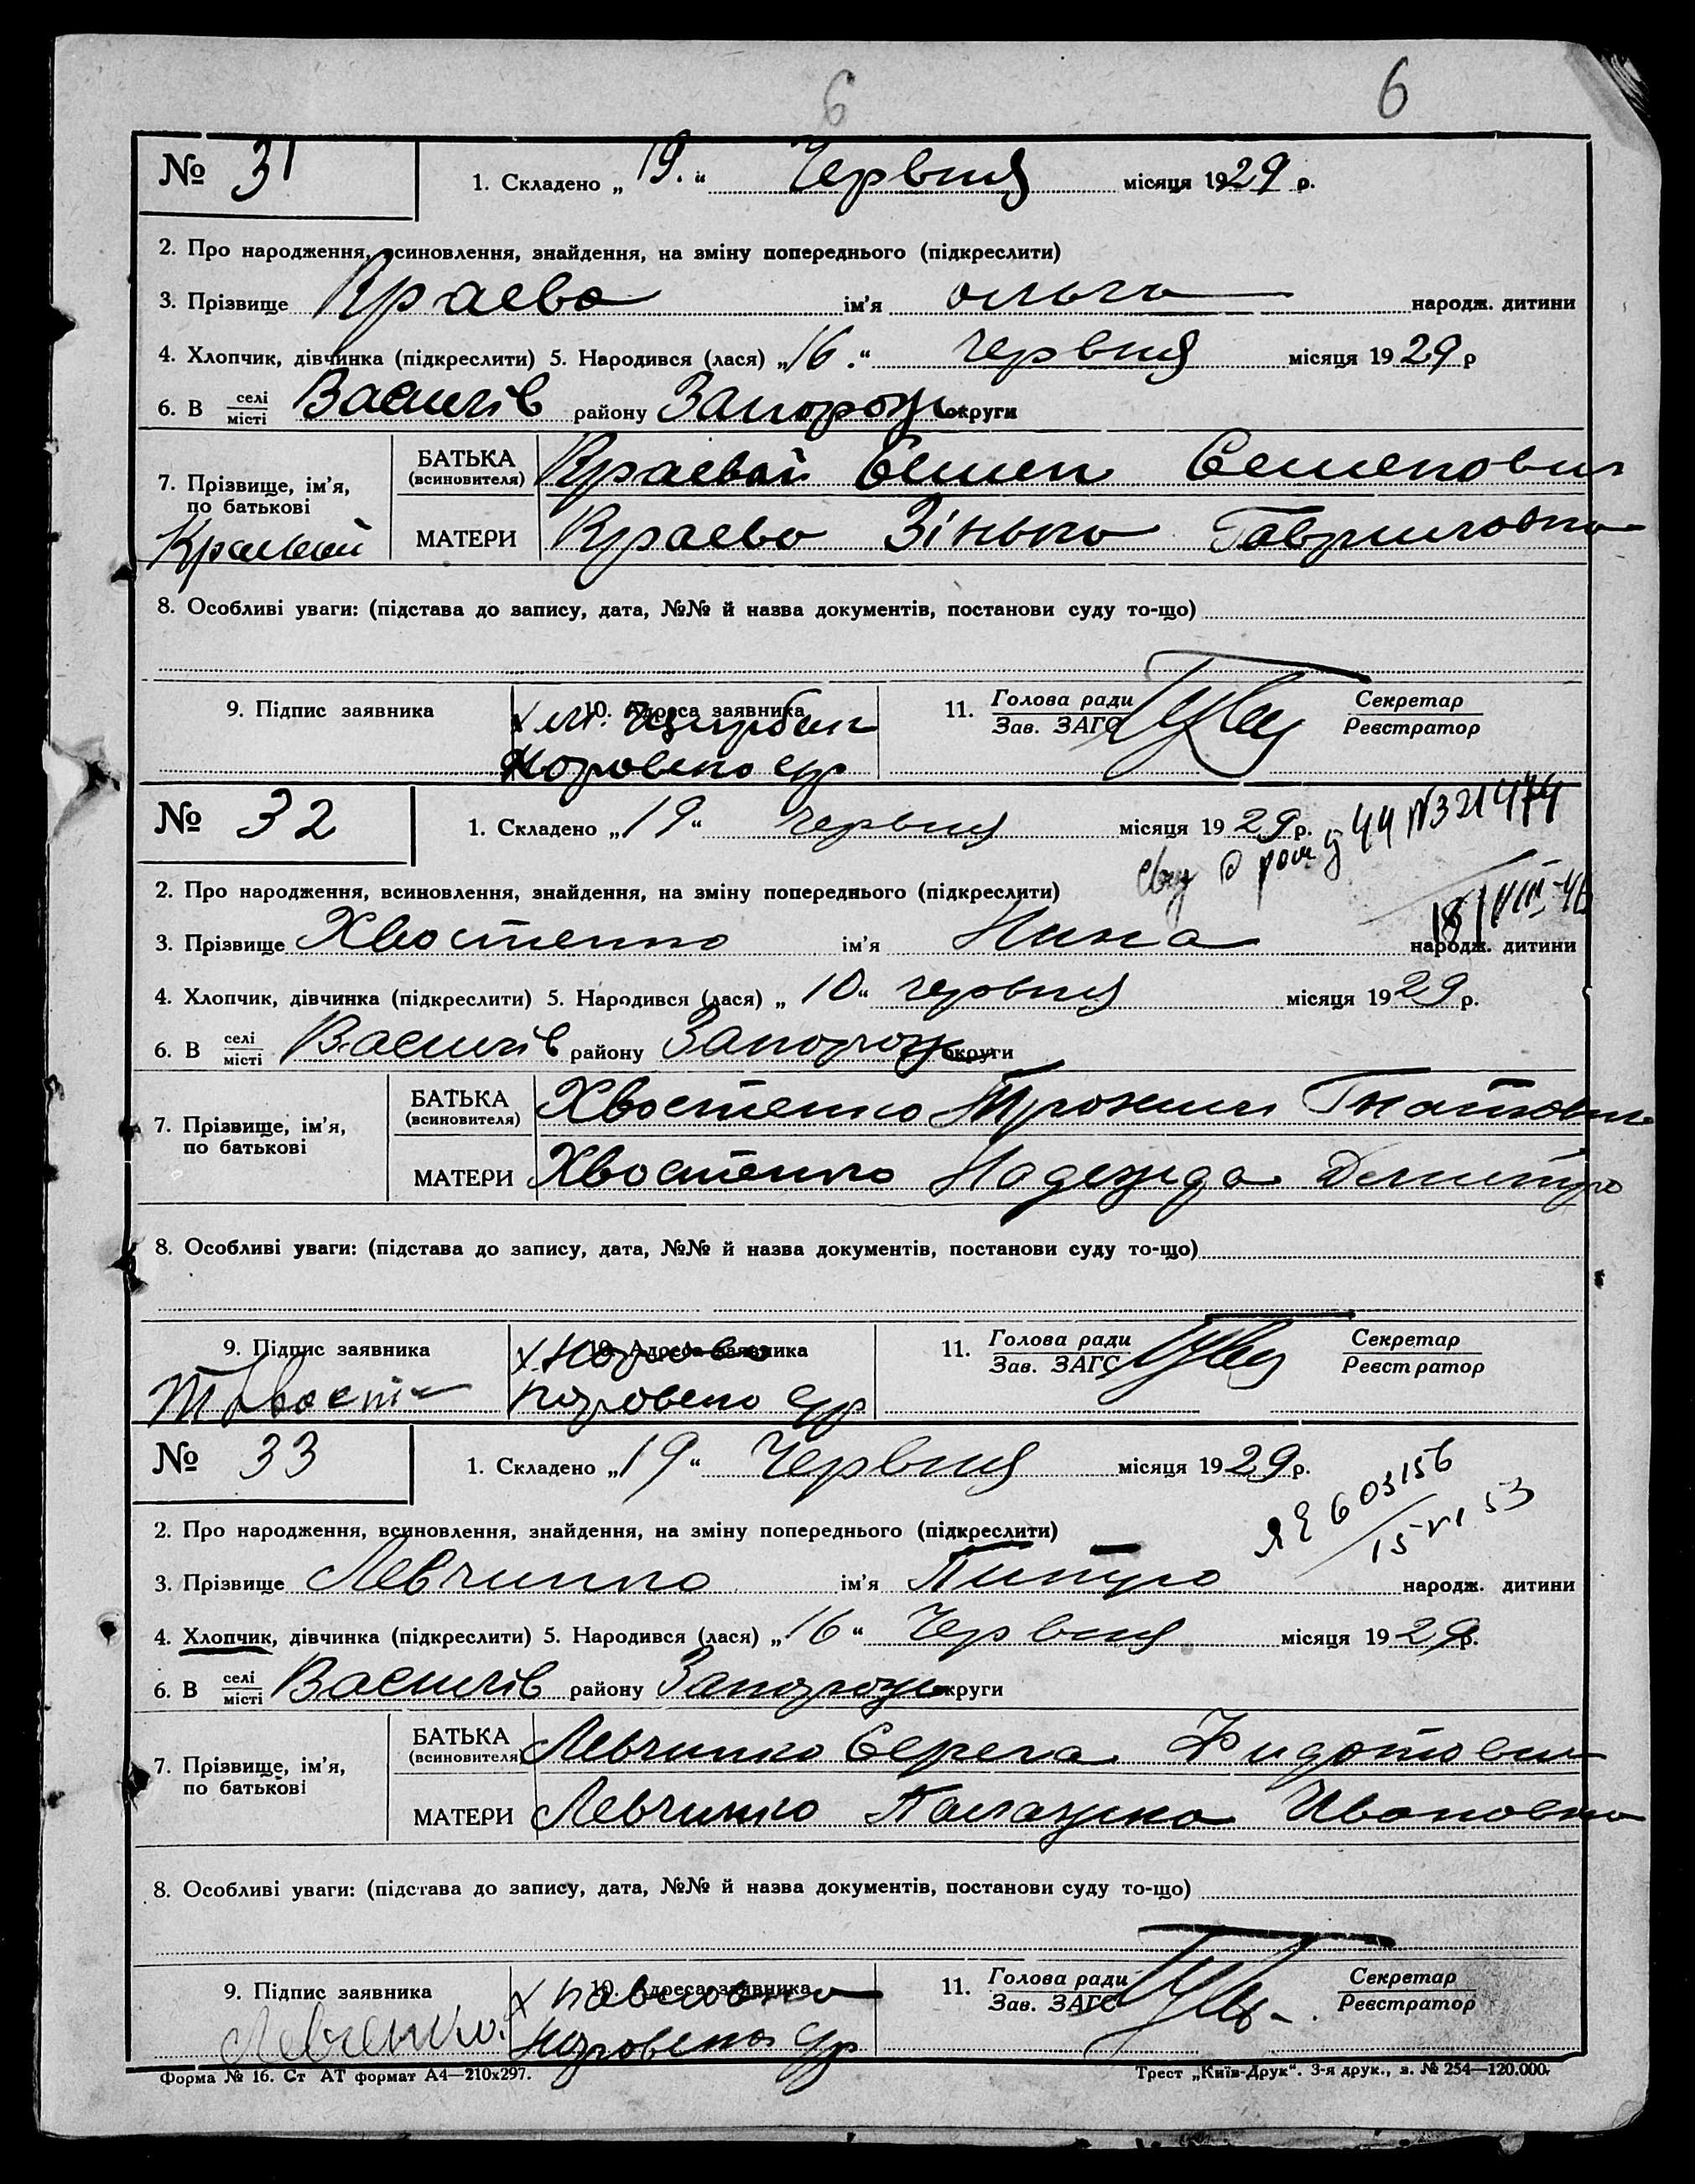 6 6
№ 31 1. Складено „19.“ Червня місяця 1929 р.
2. Про народження, всиновлення, знайдення, на зміну попереднього (підкреслити)
3. Прізвище Краева ім'я Ольга народж. дитини
4. Хлопчик, дівчинка (підкреслити) 5. Народився (лася) „16.“ червня місяця 1929 р
6. В селі місті Василів району Запорож округи
БАТЬКА (всиновителя) Краевий Семен Семенович
7. Прізвище, ім'я, по батькові
Краевий МАТЕРИ Краева Зінька Гавриловна
8. Особливі уваги: (підстава до запису, дата, №№ й назва документів, постанови суду то-що)
9. Підпис заявника 10. Адреса заявника 11. Голова ради Зав. ЗАГС Секретар Реєстратор
№ 32 1. Складено „19“ червня місяця 1929 р.
44 №321474
2. Про народження, всиновлення, знайдення, на зміну попереднього (підкреслити)
18/VIII-46
3. Прізвище Хвостенко ім'я Нина народж. дитини
4. Хлопчик, дівчинка (підкреслити) 5. Народився (лася) „10“ червня місяця 1929 р.
6. В селі місті Василів району Запорож округи
БАТЬКА (всиновителя) Хвостенко Трохим Гнатович
7. Прізвище, ім'я, по батькові
МАТЕРИ Хвостенко Надежда Демитро
8. Особливі уваги: (підстава до запису, дата, №№ й назва документів, постанови суду то-що)
9. Підпис заявника 10. Адреса заявника 11. Голова ради Зав. ЗАГС Секретар Реєстратор
№ 33 1. Складено „19“ Червня місяця 1929 р.
603156
15 VI 53
2. Про народження, всиновлення, знайдення, на зміну попереднього (підкреслити)
3. Прізвище Левчинко ім'я Питро народж. дитини
4. Хлопчик, дівчинка (підкреслити) 5. Народився (лася) „16“ Червня місяця 1929 р.
6. В селі місті Василів району Запорож округи
БАТЬКА (всиновителя) Левчинко Серега Фидотович
7. Прізвище, ім'я, по батькові
МАТЕРИ Левчинко Палажка Ивановна
8. Особливі уваги: (підстава до запису, дата, №№ й назва документів, постанови суду то-що)
9. Підпис заявника 10. Адреса заявника 11. Голова ради Зав. ЗАГС Секретар Реєстратор
Левченко.
Форма № 16. Ст АТ формат А4—210х297. Трест „Київ-Друк“. 3-я друк., з. № 254—120.000.